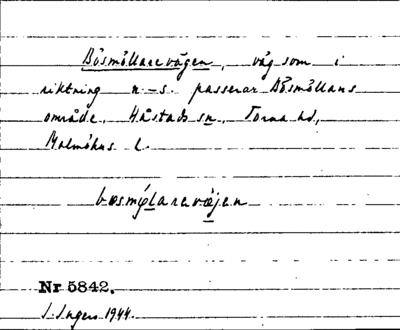 Bösmöllarevägen, väg som i
riktning n-s. passerar Bösmöllans
område, Håstads sn, Torna hd,
Malmöhus l.
Nr 5842.
I. Ingers 1944.